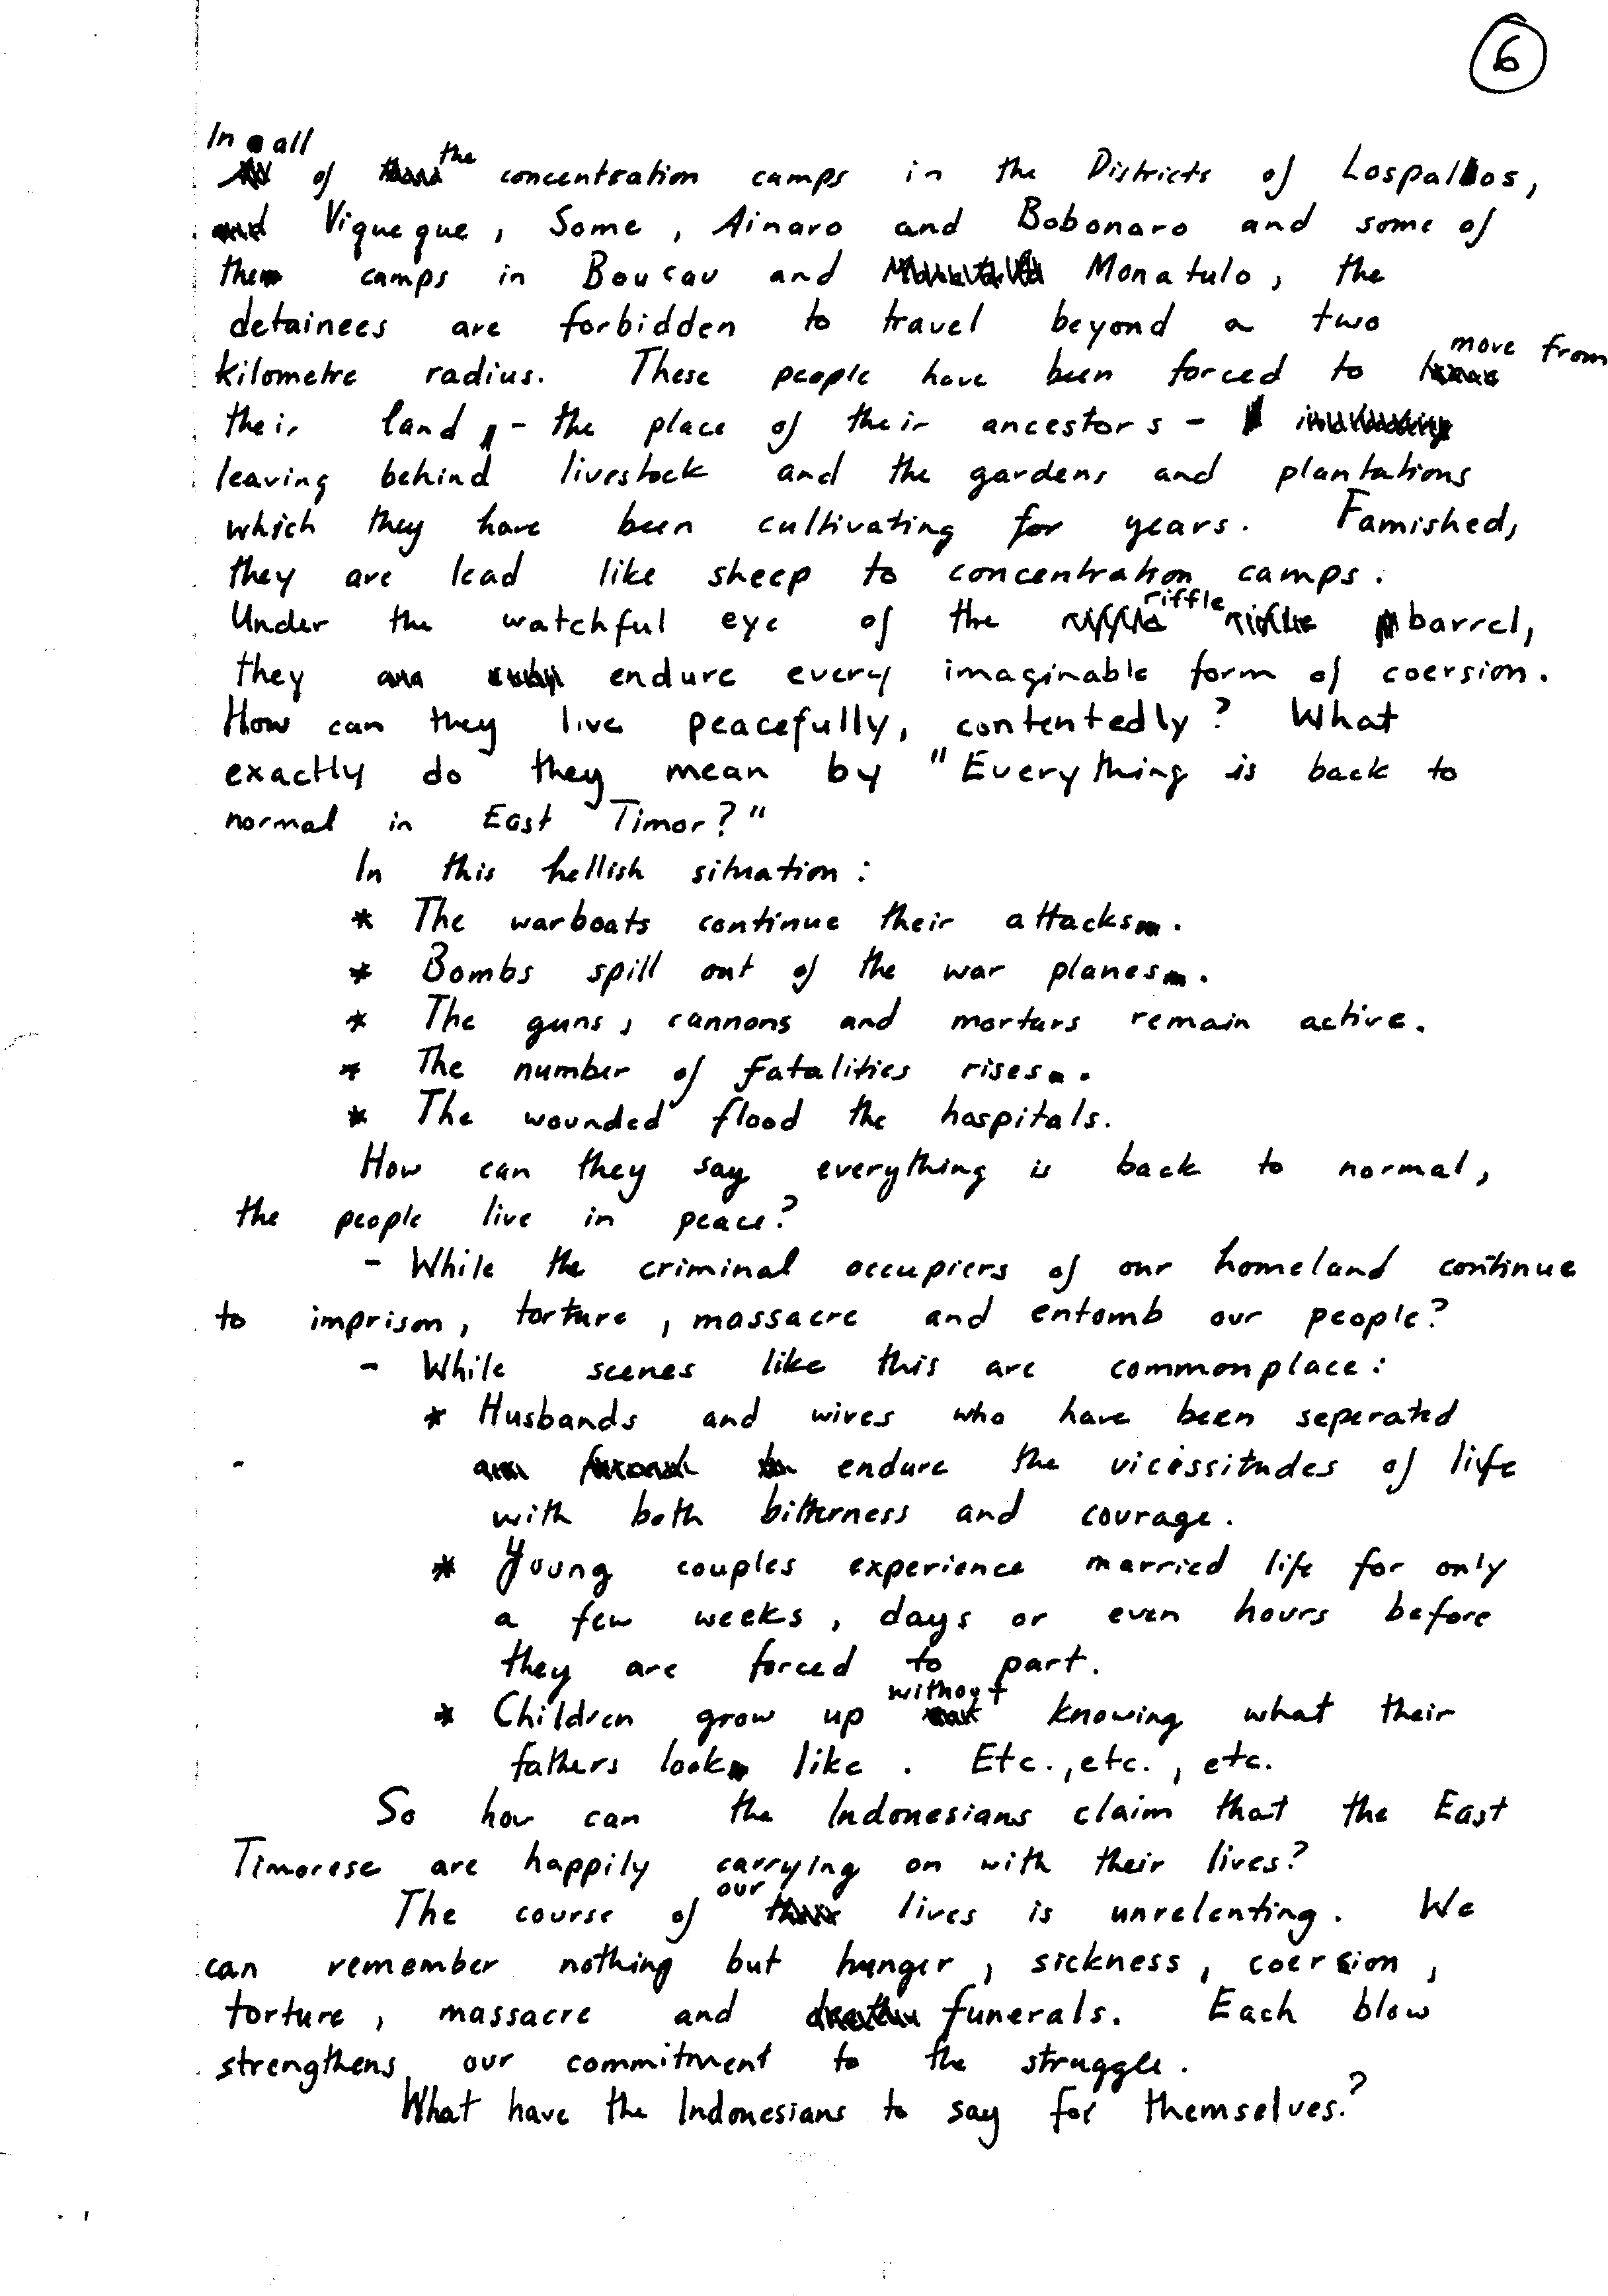 6
In all
of the concentration camps in the Districts of Lospalos,
Viqueque, Some, Ainaro and Bobonaro and some of
the camps in Boucau and Monatulo, the
detainees are forbidden to travel beyond a two
kilometre radius. These people have been forced to move from
their land - the place of their ancestors -
leaving behind livestock and the gardens and plantations
which they have been cultivating for years. Famished,
they are lead like sheep to concentration camps.
Under the watchful eye of the riffle barrel,
they endure every imaginable form of coersion.
How can they live peacefully, contentedly? What
exactly do they mean by "Everything is back to
normal in East Timor?"
In this hellish situation:
* The warboats continue their attacks.
* Bombs spill out of the war planes.
* The guns, cannons and mortars remain active.
* The number of fatalities rises.
* The wounded flood the hospitals.
How can they say everything is back to normal,
the people live in peace?
- While the criminal occupiers of our homeland continue
to imprison, torture, massacre and entomb our people?
- While scenes like this are commonplace:
* Husbands and wives who have been seperated
endure the vicissitudes of life
with both bitterness and courage.
* Young couples experience married life for only
a few weeks, days or even hours before
they are forced to part.
* Children grow up without knowing what their
fathers look like. Etc., etc., etc.
So how can the Indonesians claim that the East
Timorese are happily carrying on with their lives?
The course of our lives is unrelenting. We
can remember nothing but hunger, sickness, coersion,
torture, massacre and funerals. Each blow
strengthens our commitment to the struggle.
What have the Indonesians to say for themselves?